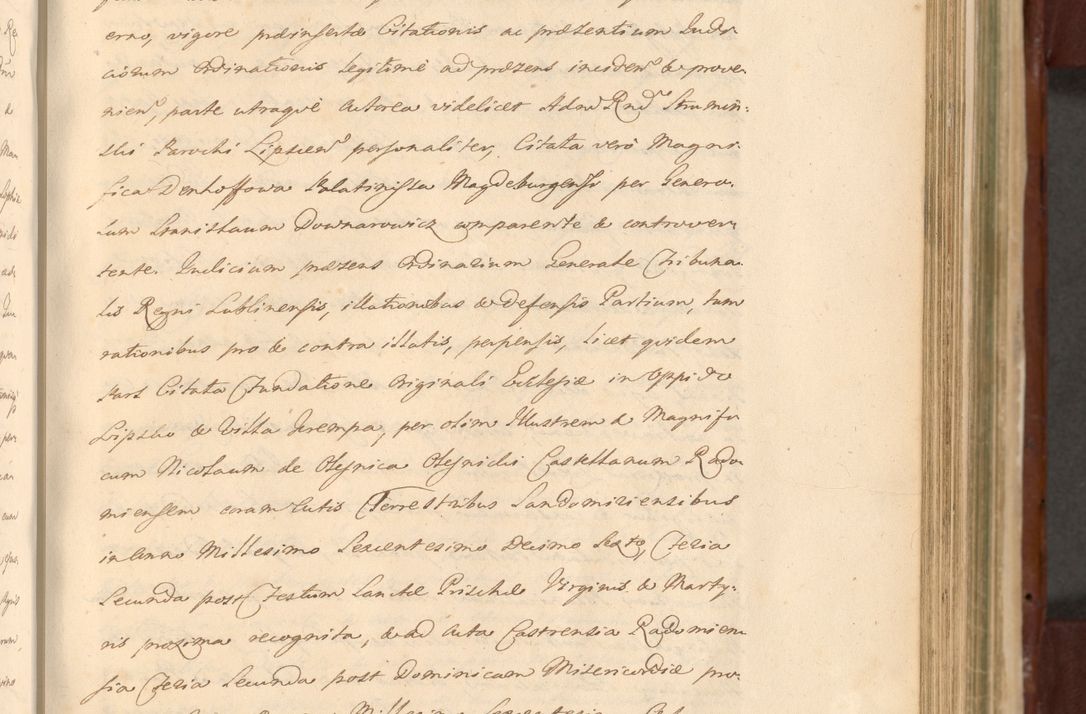 erno, vigore præinsertæ Citationis ac præsentium Judi
ciorum Ordinationis legitimè ad præsens inciden̄ & prove
nien̄, parte utraquè Actorea videlicet Adm̄ Rnd̄ Strumin:
ski Parochi Lipscen̄ personaliter, Citata verò Magni
fica Denhoffowa Palatinissa Magdeburgensi per Genero
sum Stanislaum Downarowicz comparente & controver
tente. Judicium præsens Ordinarium Generale Tribuna
lis Regni Lublinensis, illationibus & defensis Partium, tum
rationibus pro & contra illatis, perpensis, licet quidem
Pars Citata Fundatione Originali Ecclesiæ in Oppido
Lipsko & Villa Krempa, per olim Illustrem & Magnifi
cum Nicolaum de Olesnica Olesnicki Castellanum Rado
miensem coram Actis Terrestribus Sandomiriensibus
in Anno Millesimo Sexcentesimo Decimo Sexto, Feria
Secunda post Festum Sanctæ Priscæ Virginis & Marty
ris proxima recognita, & ad Acta Castrensia Radomien
sia Feria Secunda post Dominicam Misericordiæ pro